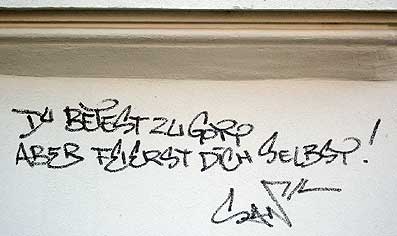 DU BETEST ZU GOTT
ABER FEIERST DICH SELBST!